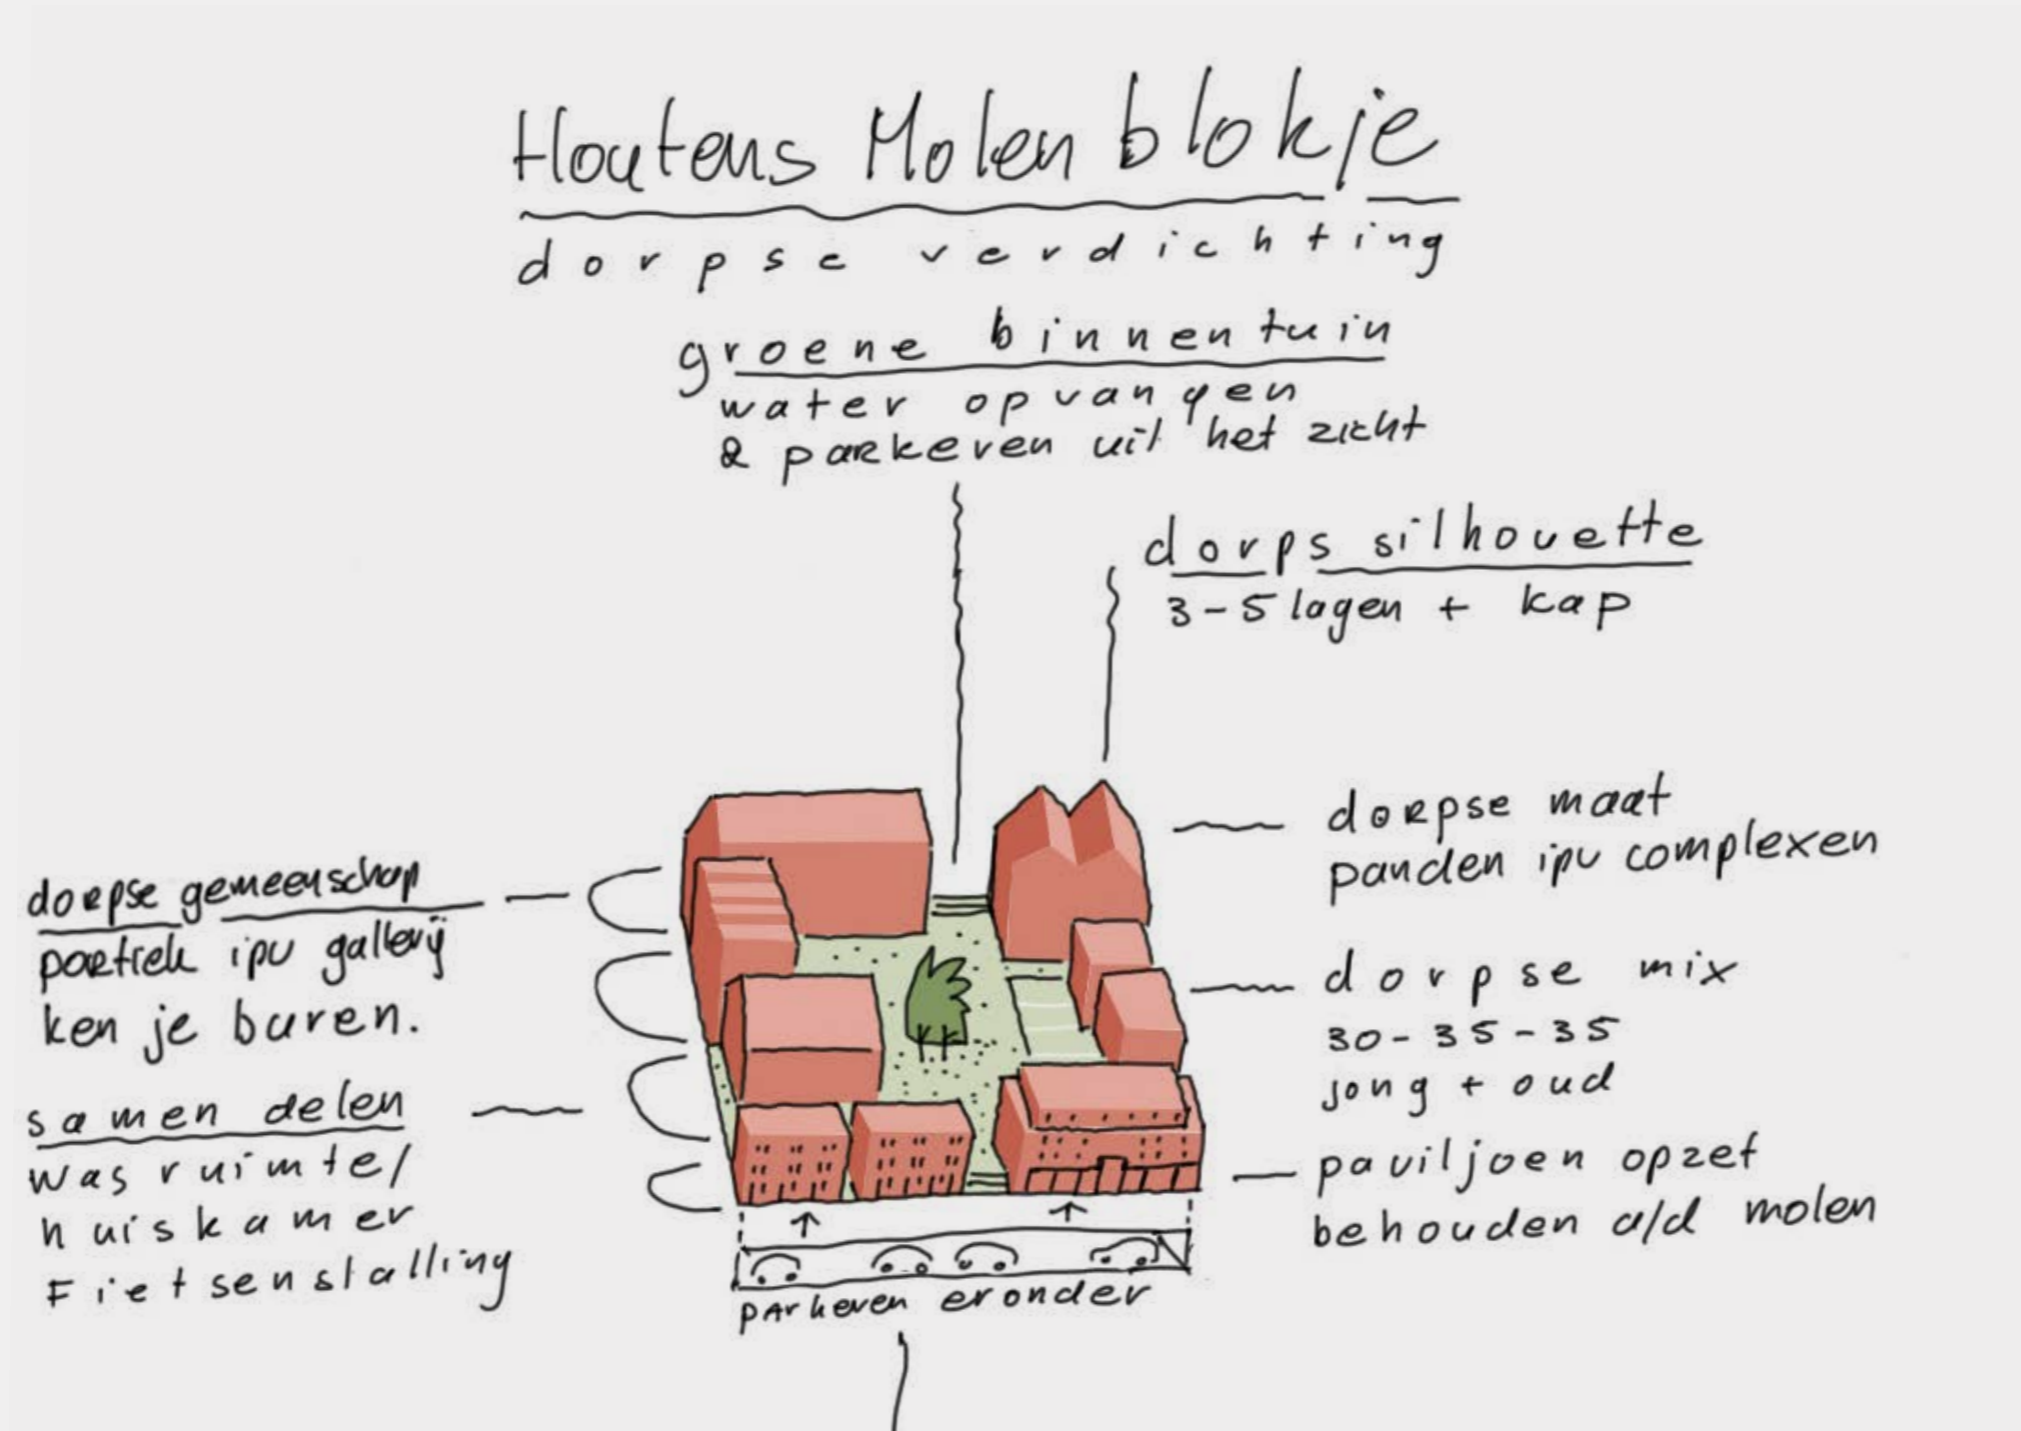 Houtens Molenblokje
dorpse verdichting
groene binnentuin
water opvangen
& parkeren uit het zicht
dorps silhouette
3-5 lagen + kap
dorpse maat
panden ipv complexen
dorpse mix
30-35-35
jong + oud
paviljoen opzet
behouden a/d molen
dorpse gemeenschap
portiek ipv gallerij
ken je buren.
samen delen
wasruimte/
huiskamer
Fietsenstalling
parkeren eronder